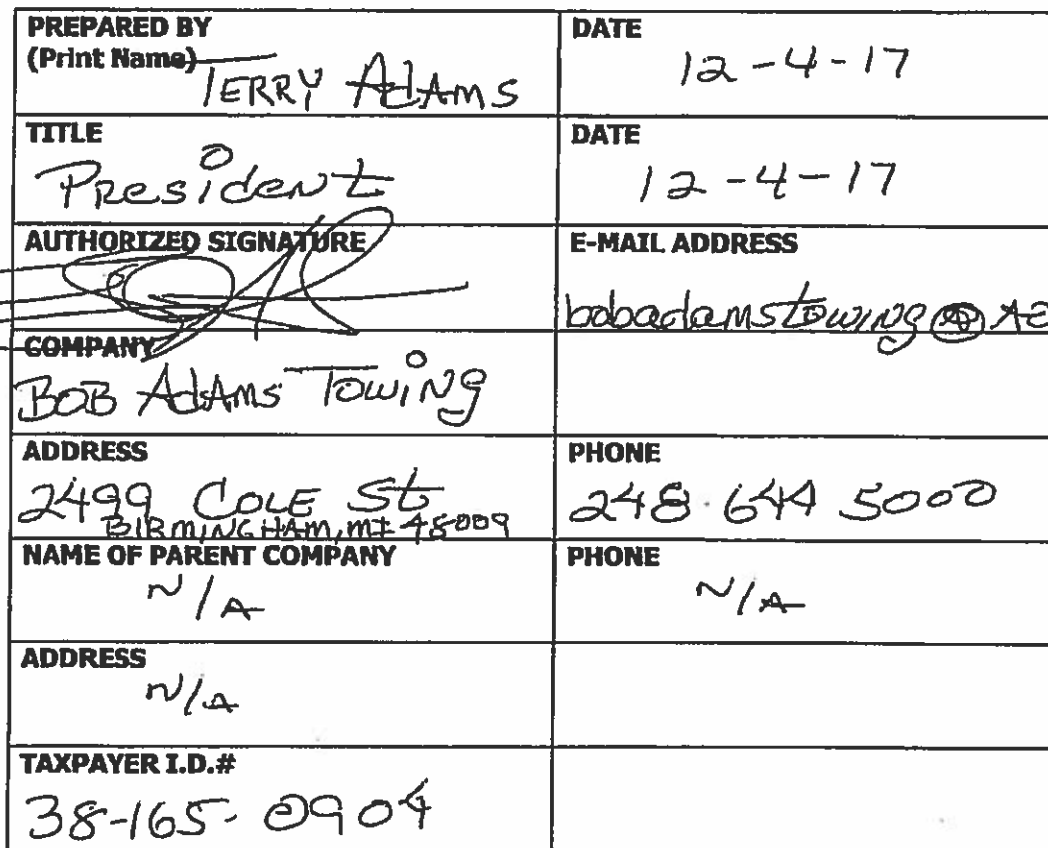 PREPARED BY
(Print Name) TERRY ADAMS
DATE
12-4-17
TITLE
President
DATE
12-4-17
AUTHORIZED SIGNATURE
E-MAIL ADDRESS
bobadamstowing@
COMPANY
BOB AdAms Towing
ADDRESS
2499 COLE St
BIRMINGHAM, MI 48009
PHONE
248.644 5000
NAME OF PARENT COMPANY
N/A
PHONE
N/A
ADDRESS
N/A
TAXPAYER I.D.#
38-165-0904